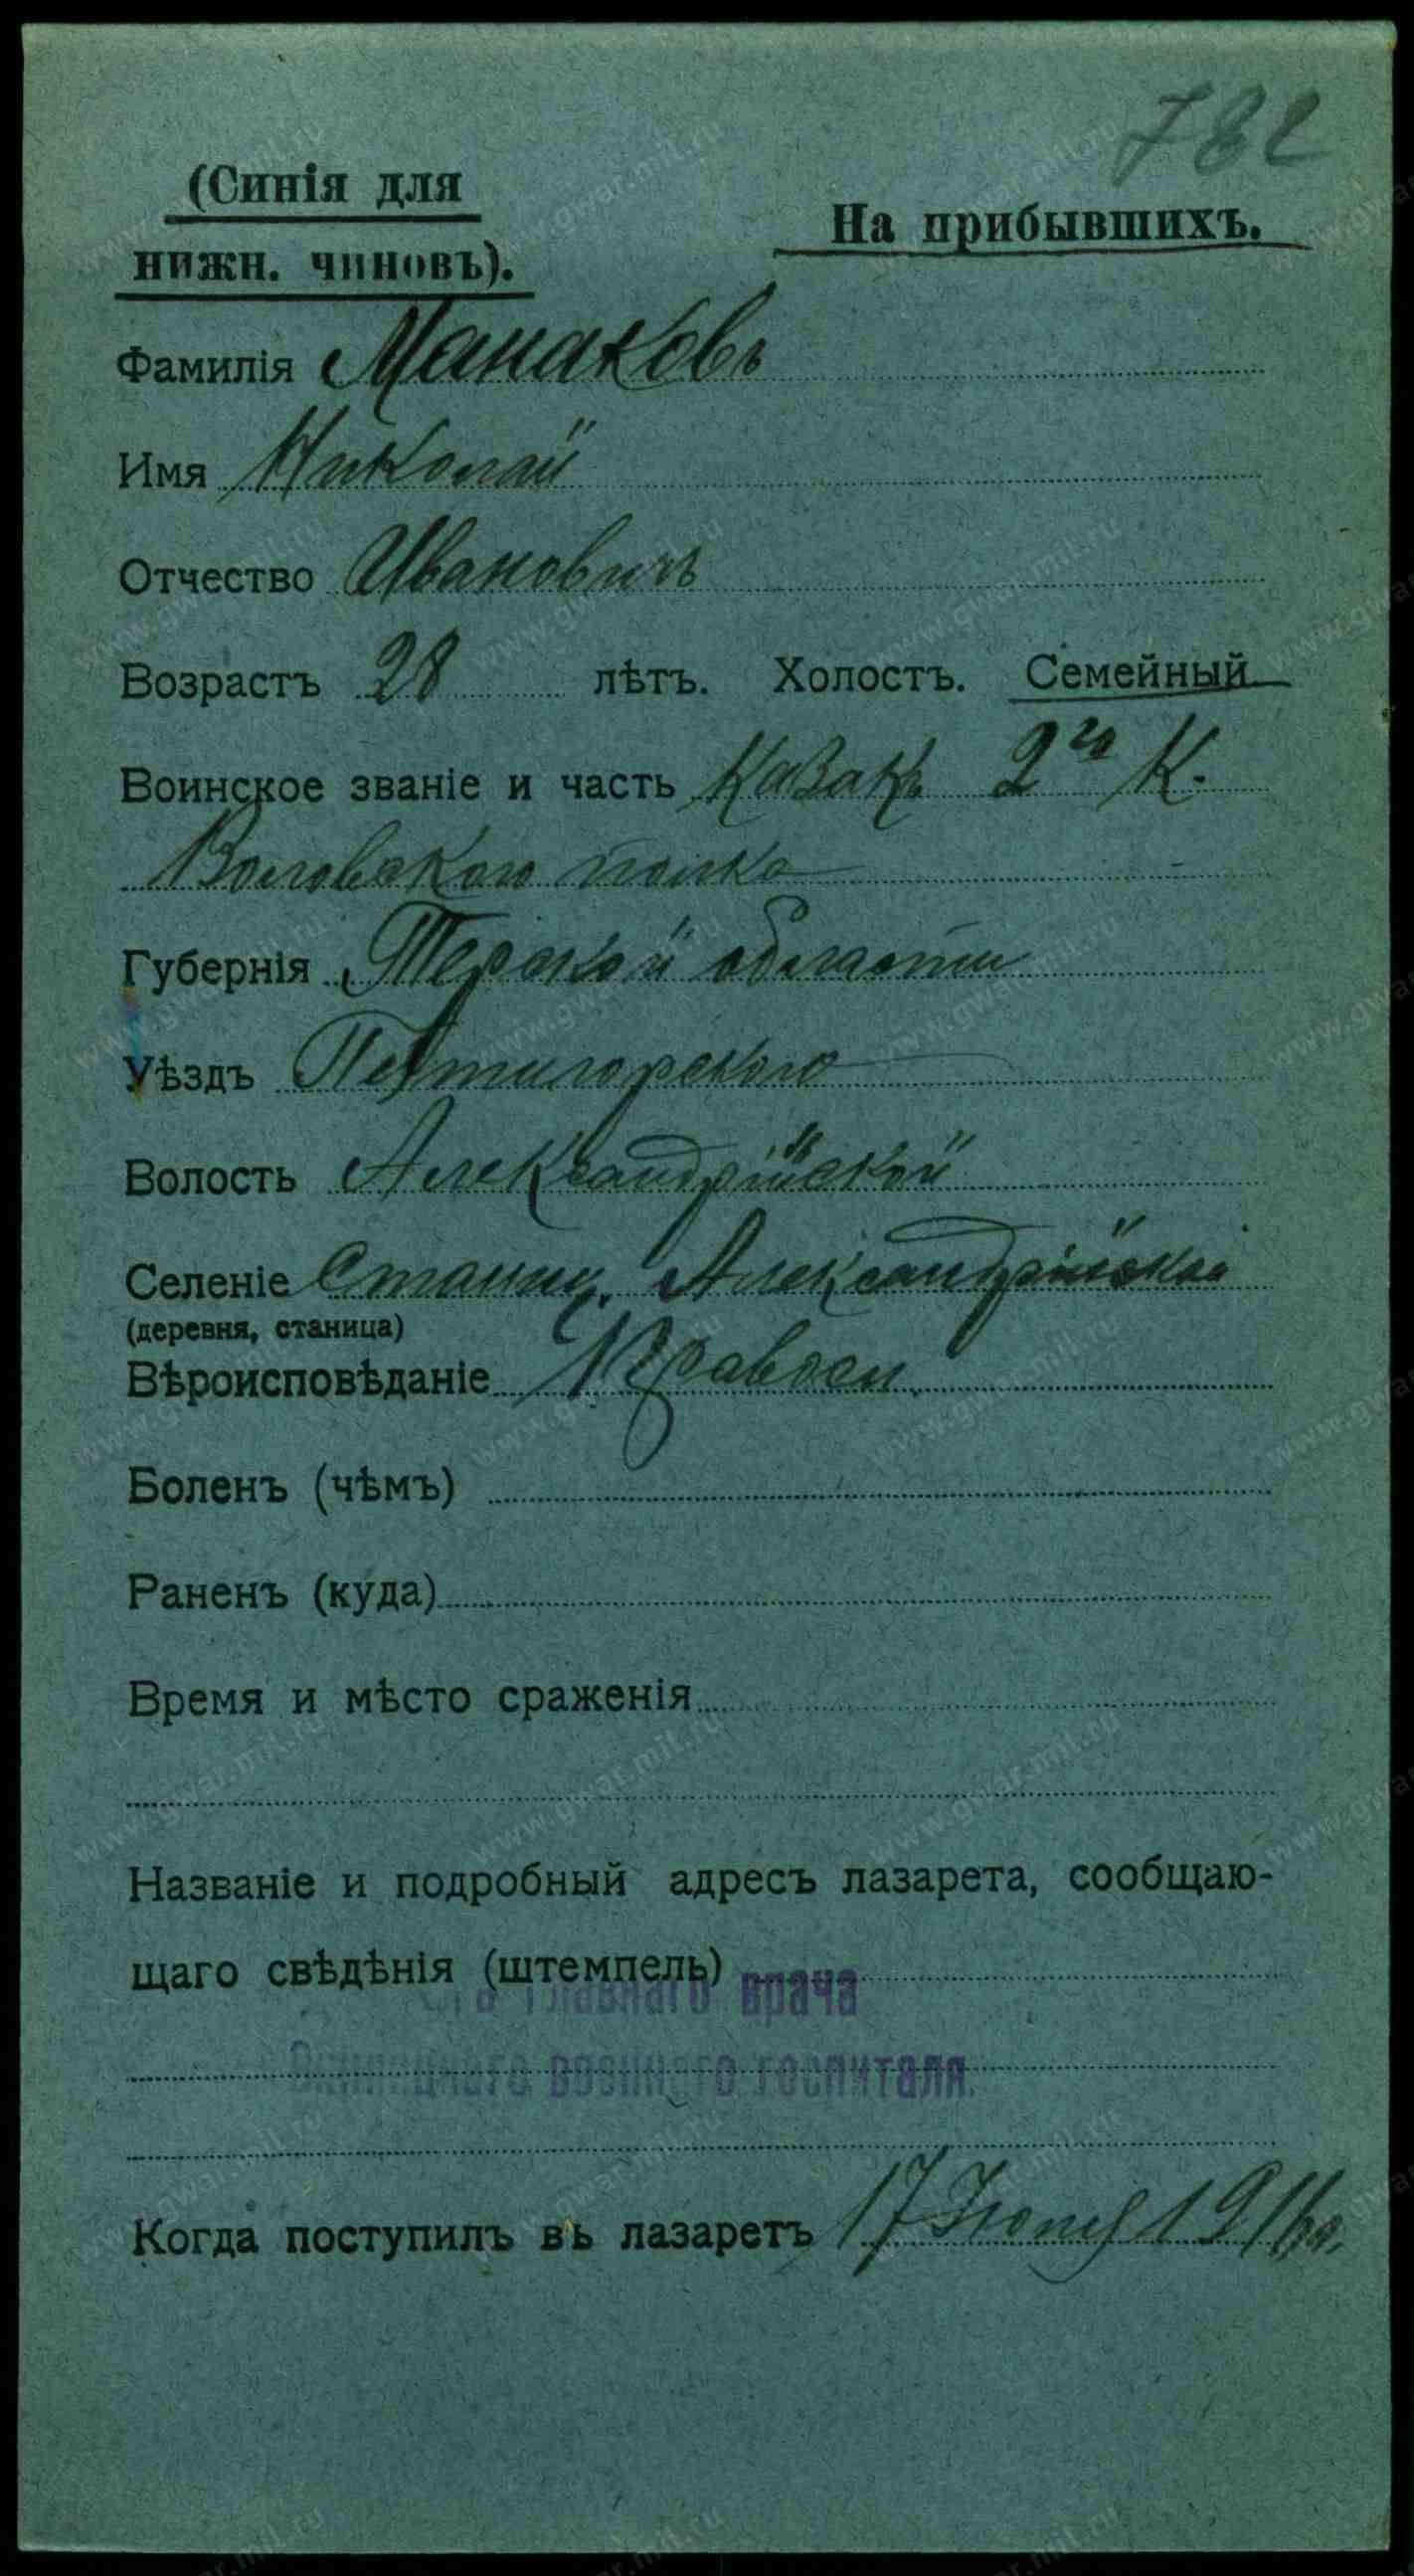 782
(Синія для
нижн. чиновъ).
На прибывшихъ.
Фамилія Манаковъ
Имя Николай
Отчество Ивановичъ
Возрастъ 28 лѣтъ. Холостъ. Семейный
Воинское званіе и часть Казакъ 2го К.
Волгскаго полка
Губернія Терской области
Уѣздъ Пятигорского
Волость Александрійской
Селеніе Станиц. Александрійской
(деревня, станица)
Вѣроисповѣданіе Правосл.
Боленъ (чѣмъ)
Раненъ (куда)
Время и мѣсто сраженія
Названіе и подробный адресъ лазарета, сообщаю-
щаго свѣдѣнія (штемпель)
Главнаго врача
военнаго госпиталя.
Когда поступилъ въ лазаретъ 17 Іюня 1916 г.
www.gwar.mil.ru